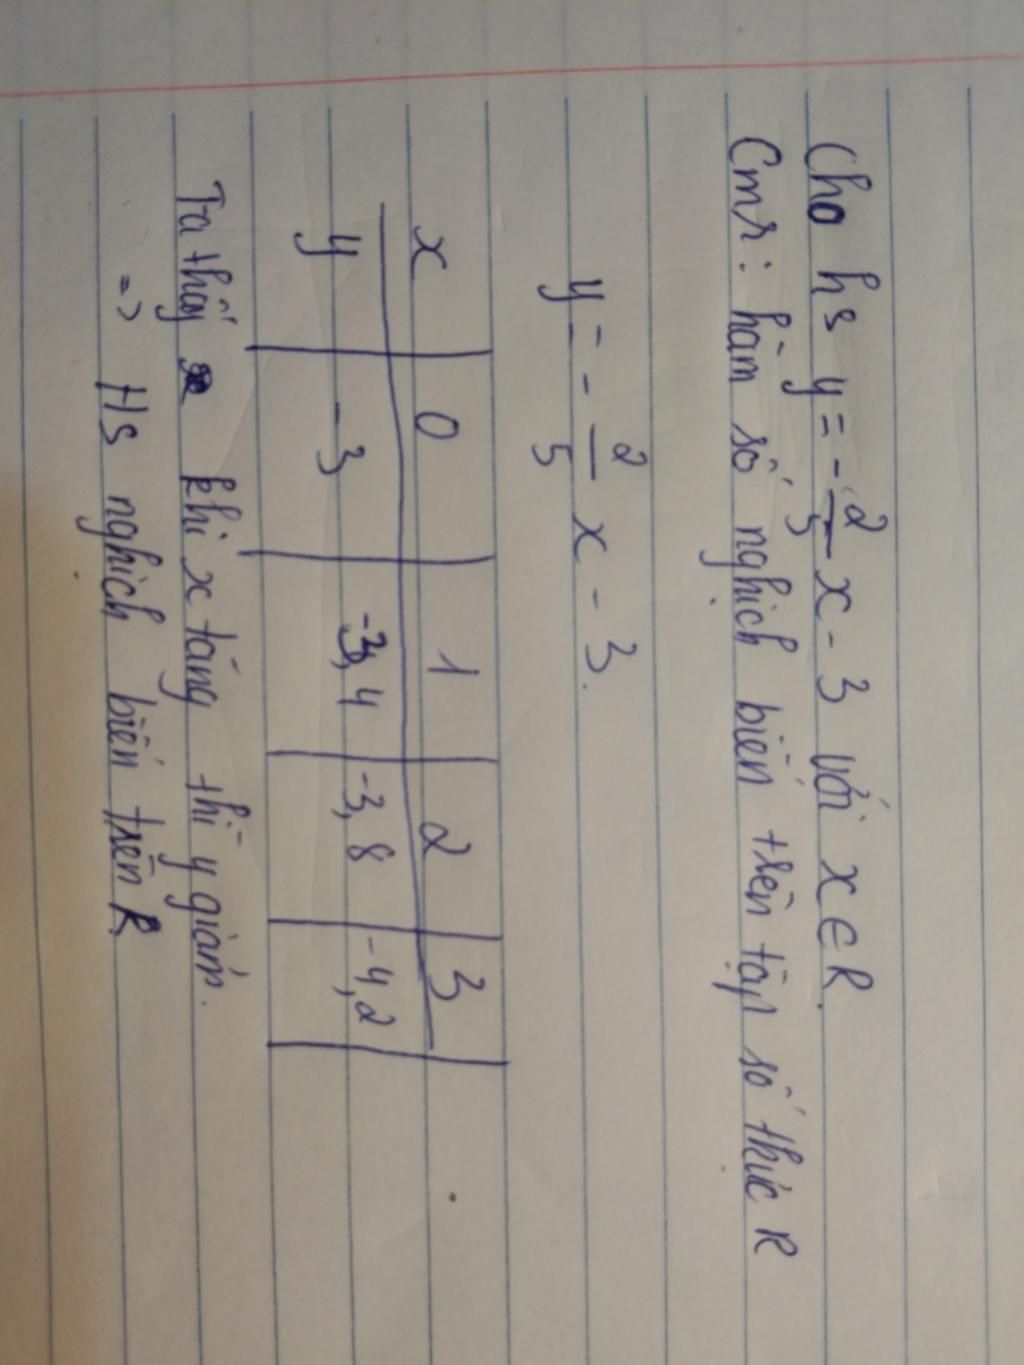 Cho hs y = -2/5 x - 3 với x ∈ R.
Cmr: hàm số nghịch biến trên tập số thực R
y = - 2/5 x - 3.
x 0 1 2 3
y -3 -3,4 -3,8 -4,2
Ta thấy khi x tăng thì y giảm.
=> Hs nghịch biến trên R